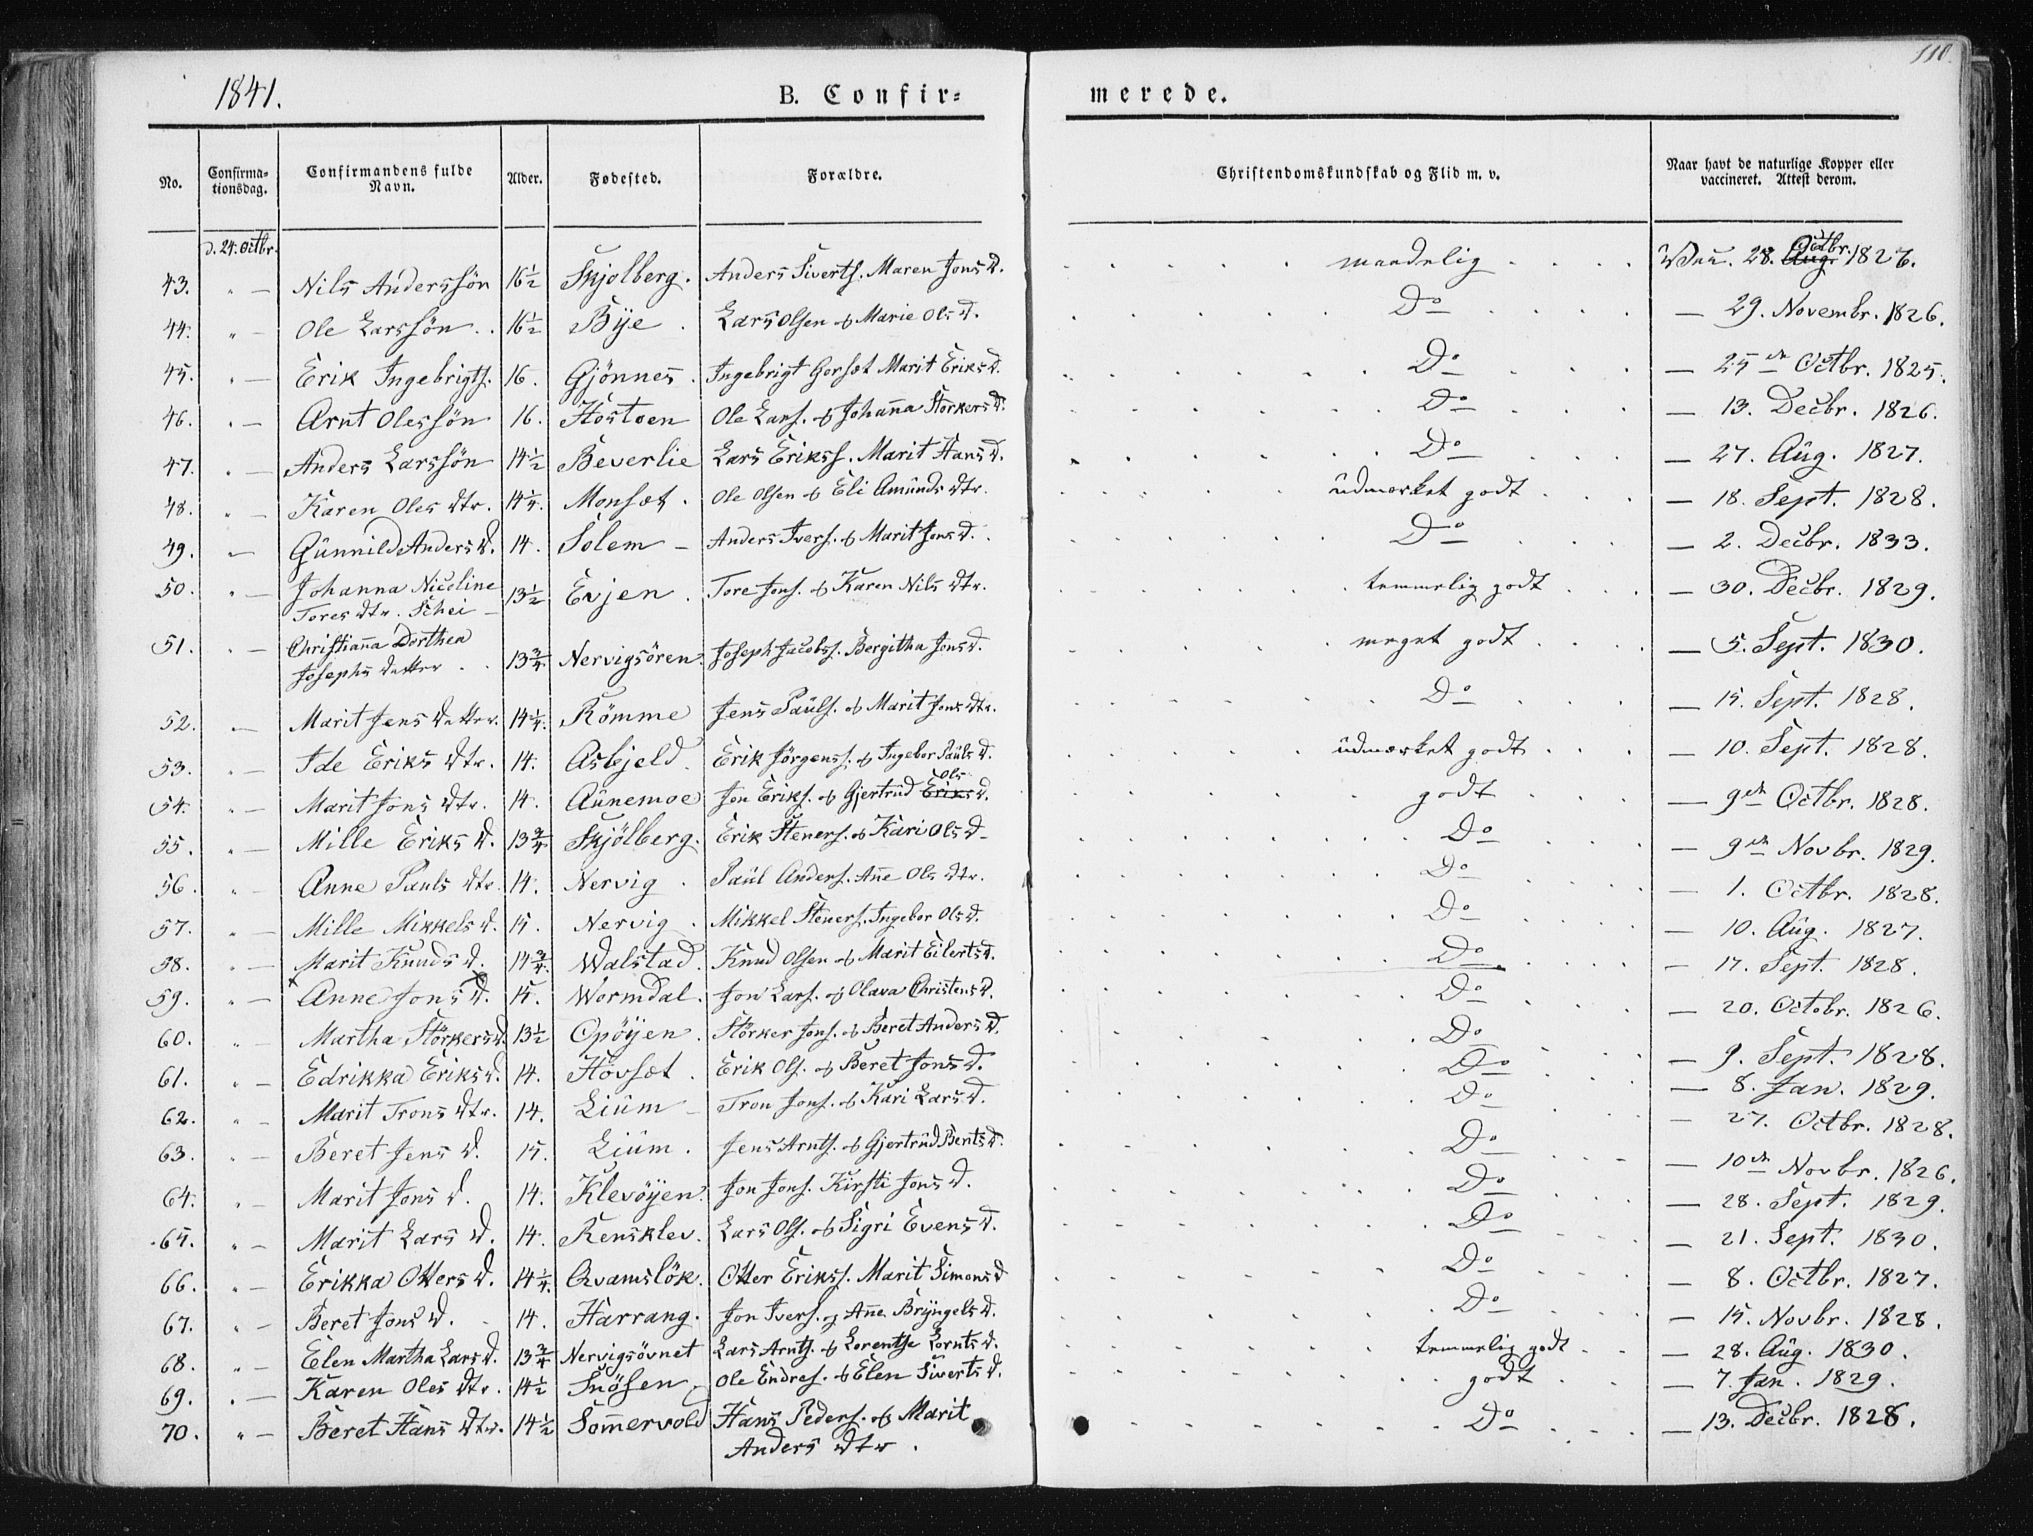 1841. B. Confir= merede. 110.
No. Confirma-tionsdag. Confirmandens fulde Navn. Alder. Fødested. Forældre. Christendomskundskab og Flid m. v. Naar havt de naturlige Kopper eller vaccineret. Attest derom.
d. 24. Octbr.
43. " — Nils Anderssön 16½ Skjolberg. Anders Siverts. Maren Jons D. maadelig Vac. 28. Octbr. 1826.
44. " — Ole Larssön 16½ Bÿe Lars Olsen & Marie Ols D. Do — 29. Novembr. 1826.
45. " — Erik Ingebrigts. 16. Gjönnes. Ingebrigt Gorsæt Marit Eriks D. Do — 25de Octbr. 1825.
46. " — Arnt Olessön 16. Höstoen Ole Lars. & Johanna Störkers D. Do — 13. Decbr. 1826.
47. " — Anders Larssön 14½ Beverlie Lars Erikss. Marit Hans D. Do — 27. Aug. 1827.
48. " — Karen Oles Dtr. 14¼. Monsæt. Ole Olsen & Eli Amunds Dtr. udmærket godt — 18. Sept. 1828.
49. " — Gunnild Anders D. 14. Solem Anders Ivers. & Marit Jons D. Do — 2. Decbr. 1833.
50. " — Johanna Nicoline Tores Dtr. Schei 13½ Evjen Tore Jons. & Karen Nils Dtr. temmelig godt — 30. Decbr. 1829.
51. " — Christianna Dorthea Josephs Datter 13¾ Nervigsören Joseph Jacobs. Bergitha Jons D. meget godt — 5. Sept. 1830.
52. " — Marit Jens Datter. 14¼. Römme Jens Pauls. & Marit Jons Dtr. Do — 15. Sept. 1828.
53. " — Ide Eriks Dtr. 14. Asbjeld. Erik Jörgenss. & Ingebor Pauls D. udmærket godt — 10. Sept. 1828.
54. " — Marit Jons Dtr. 14. Aunemoe Jon Eriks. & Gjertrud Ols D. godt — 9de Octbr. 1828.
55. " — Mille Eriks D. 13¾ Skjölberg. Erik Steners. & Kari Ols D. Do — 9de Novbr. 1829.
56. " — Anne Pauls Dtr. 14. Nervig Paul Anders. Anne Ols Dtr. Do — 1. Octbr. 1828.
57. " — Mille Mikkels D. 15. Nervig Mikkel Steners. Ingebor Ols D. Do — 10. Aug. 1827.
58. " — Marit Knuds D. 14¾. Walstad. Knud Olsen & Marit Eilerts D. Do — 17. Sept. 1828.
59. " — Anne Jons D. 15. Wormdal. Jon Lars. & Olava Christens D. Do — 20. Octobr. 1826.
60. " — Martha Störkers D. 13½ Opöÿen. Störker Jons. & Beret Anders D. Do — 9. Sept. 1828.
61. " — Edrikka Eriks D. 14. Hovsæt. Erik Ols. & Beret Jons D. Do — 8. Jan. 1829.
62. " — Marit Trons Dtr. 14. Lium Tron Jons. & Kari Lars D. Do — 27. Octbr. 1828.
63. " — Beret Jens D. 15. Lium. Jens Arnts. & Gjertrud Bents D. Do — 10de Novbr. 1826.
64. " — Marit Jons D. 14. Klevöÿen. Jon Jons. Kirsti Jons D. Do — 28. Sept. 1829.
65. " — Marit Lars D. 14. Rensklev. Lars Ols. & Sigri Evens D. Do — 21. Sept. 1830.
66. " — Erikka Otters D. 14¼. Qvamslök. Otter Erikss. Marit Simons D Do — 8. Octbr. 1827.
67. " — Beret Jons D. 14. Harrang. Jon Ivers. og Anne Brÿngels D. Do — 15. Novbr. 1828.
68. " — Elen Martha Lars D. 13¾ Nervigsövnet Lars Arnts. & Lorentse Lornts D. temmelig godt — 28. Aug. 1830.
69. " — Karen Oles Dtr. 14½ Snösen Ole Endres. & Elen Siverts D. godt — 7. Jan. 1829.
70. " — Beret Hans Dtr. 14½ Sommervold Hans Peders. & Marit Anders Dtr. Do — 13. Decbr. 1828.